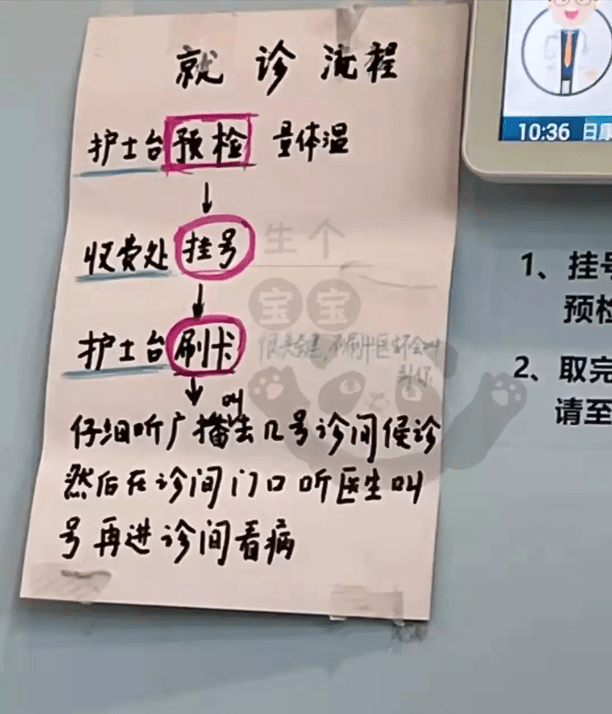 就诊流程
护士台预检 量体温
↓
收费处挂号
↓
护士台刷卡 很关键,不刷卡医生不会叫到你
↓
仔细听广播叫去几号诊间候诊
然后在诊间门口听医生叫
号再进诊间看病
生个
宝宝
10:36
1、挂号
预检
2、取完
请至